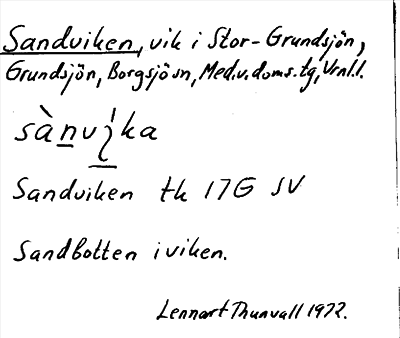 Sandviken, vik i Stor-Grundsjön,
Grundsjön, Borgsjö sn, Med.v.doms.tg, Vrnl.l.
sànvi̯ka
Sandviken tk 17G SV
Sandbotten i viken.
Lennart Thunvall 1972.